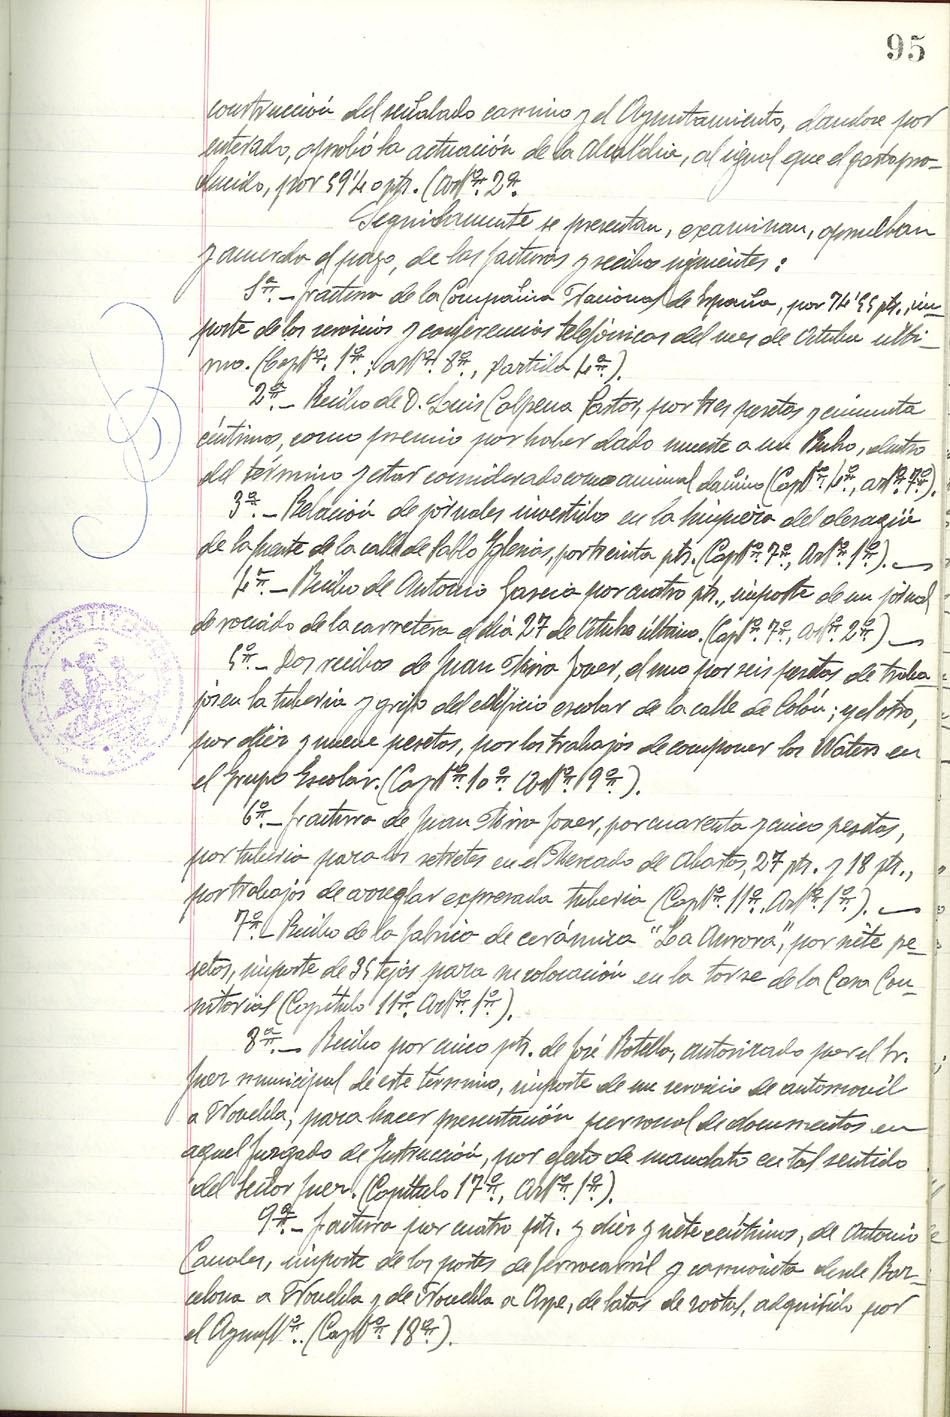 95
construcción del señalado camino y el Ayuntamiento, dandose por
enterado, aprobó la actuación de la Alcaldia, al igual que el gasto pro-
ducido, por 59'40 pts. (Artº. 2º.
Seguidamente se presentan, examinan, aprueban
y acuerda el pago, de las facturas y recibos siguientes:
1ª.- factura de la Compañia Nacional de España, por 74'55 pts., im-
porte de los servicios y conferencias telefónicas del mes de Octubre ulti-
mo. (Captº. 1º.; artº. 8º., Partida 4ª.).
2ª.- Recibo de D. Luis Calpena Pastor, por tres pesetas y cincuenta
céntimos, como premio por haber dado muerte a un Buho, dentro
del término y estar considerado como animal dañino (Captº. 4º., artº. 7º.).
3ª.- Relación de jornales invertidos en la limpieza del desagüe
de la fuente de la calle de Pablo Iglesias, por treinta pts. (Captº. 7º., Artº. 1º.).
4ª.- Recibo de Antonio Garcia por cuatro pts., importe de un jornal
de rociado de la carretera el dia 27 de Octubre último. (Captº. 7º., artº. 2º.)
5ª.- Dos recibos de Juan Mira Jover, el uno por seis pesetas de traba-
jos en la tuberia y grifo del edificio escolar de la calle de Colón; y el otro,
por diez y nueve pesetas, por los trabajos de componer los Waters en
el Grupo Escolar. (Captº. 10º. Artº. 9º.).
6ª.- factura de Juan Mira Jover, por cuarenta y cinco pesetas,
por tuberia para los retretes en el Mercado de Abastos, 27 pts. y 18 pts.,
por trabajos de arreglar expresada tuberia (Captº. 11º. Artº. 1º.).
7ª.- Recibo de la fabrica de cerámica "La Aurora", por siete pe-
setas, importe de 35 tejas para su colocación en la torre de la Casa Con-
sistorial (Capítulo 11º. Artº. 1º.).
8ª.- Recibo por cinco pts. de José Botella, autorizado por el Sr.
Juez municipal de este término, importe de un servicio de automovil
a Novelda, para hacer presentación personal de documentos en
aquel Juzgado de Instrucción, por efecto de mandato en tal sentido
del Señor Juez. (Capítulo 17º., Artº. 1º.).
9ª.- factura por cuatro pts. y diez y siete céntimos, de Antonio
Canales, importe de los portes de ferrocarril y camioneta desde Bar-
celona a Novelda y de Novelda a Aspe, de latas de zotal, adquirido por
el Ayuntº. (Captº. 18º.).